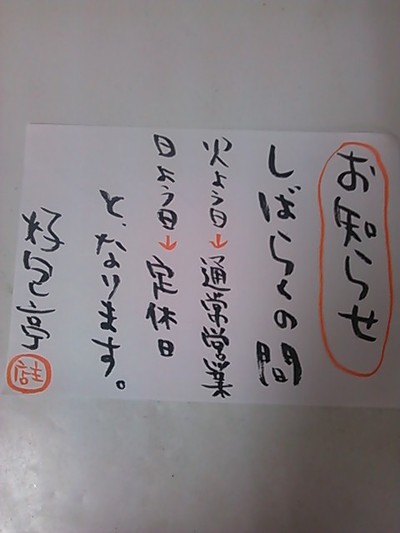 お知らせ
しばらくの間
火よう日→通常営業
日よう日→定休日
と、なります。